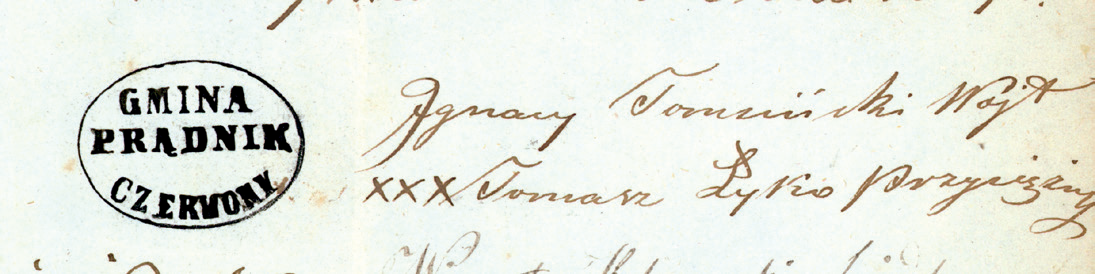 GMINA
PRĄDNIK
CZERWONY
Ignacy Tomsiński Wójt
XXX Tomasz Łyko Przysiężny